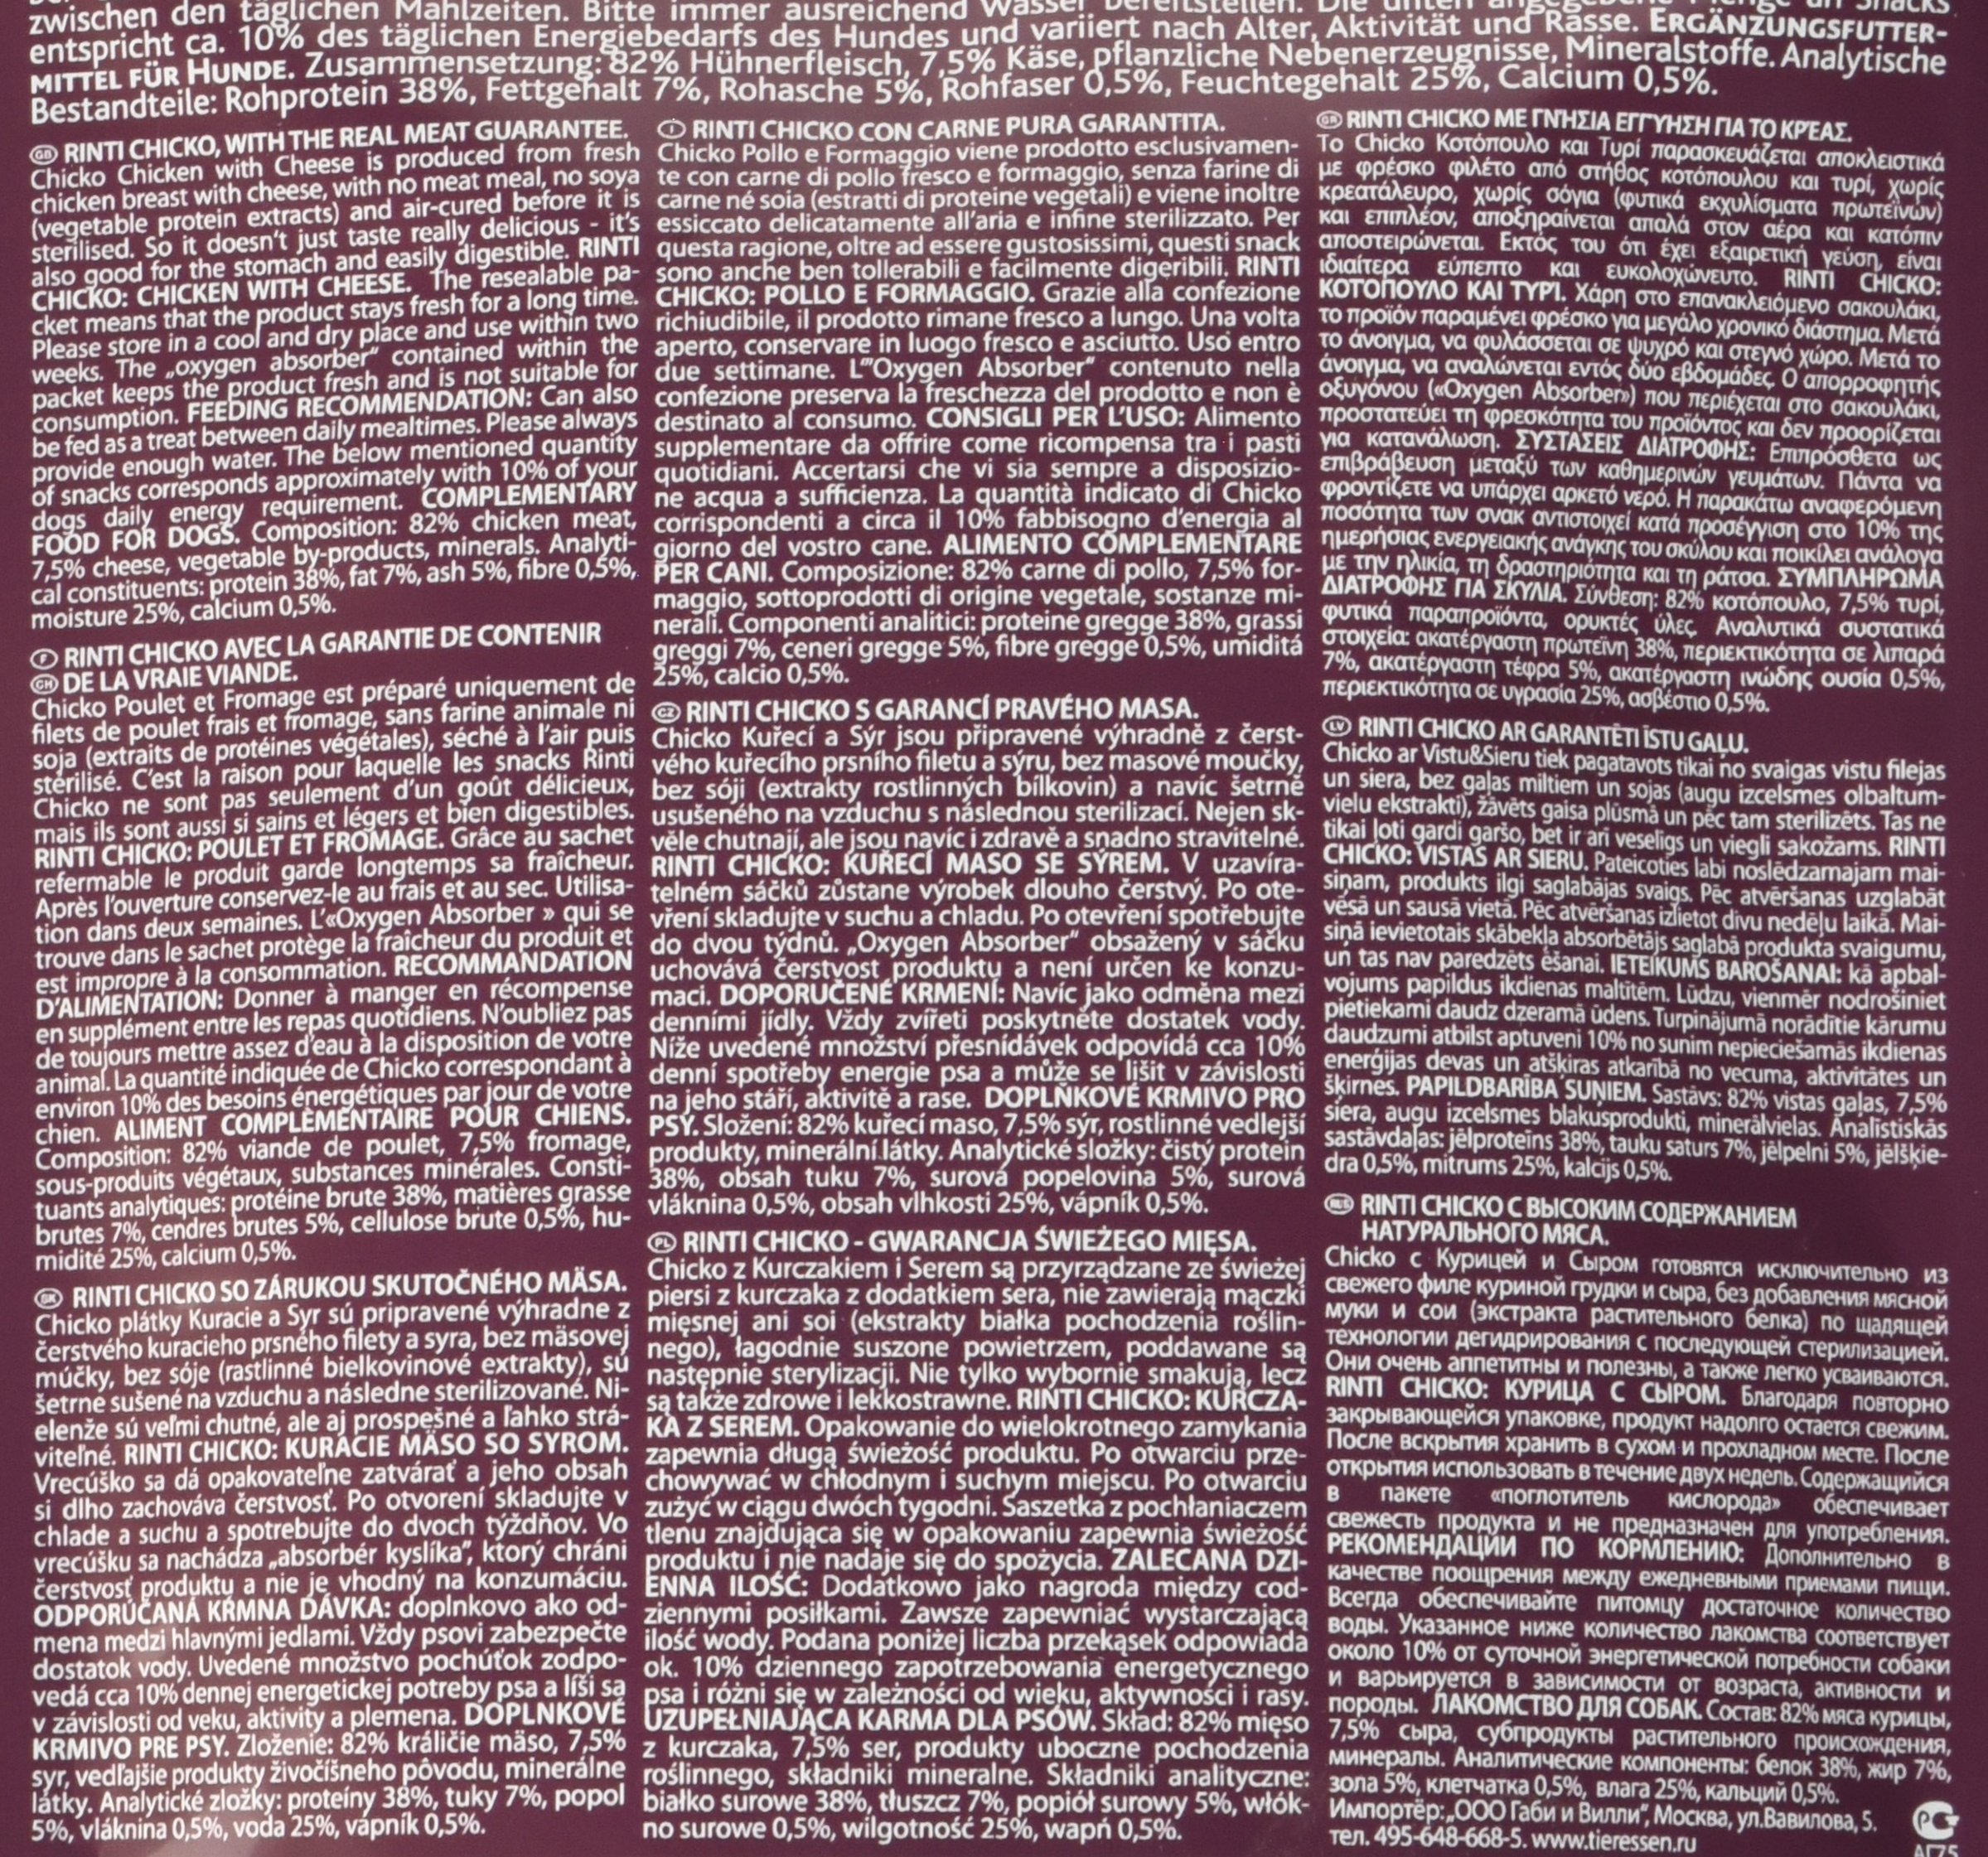 zwischen den täglichen Mahlzeiten. Bitte immer ausreichend Wasser bereitstellen. Die unten angegebene Menge an Snacks
entspricht ca. 10% des täglichen Energiebedarfs des Hundes und variiert nach Alter, Aktivität und Rasse. ERGÄNZUNGSFUTTER-
MITTEL FÜR HUNDE. Zusammensetzung: 82% Hühnerfleisch, 7,5% Käse, pflanzliche Nebenerzeugnisse, Mineralstoffe. Analytische
Bestandteile: Rohprotein 38%, Fettgehalt 7%, Rohasche 5%, Rohfaser 0,5%, Feuchtegehalt 25%, Calcium 0,5%.
GB RINTI CHICKO, WITH THE REAL MEAT GUARANTEE.
Chicko Chicken with Cheese is produced from fresh
chicken breast with cheese, with no meat meal, no soya
(vegetable protein extracts) and air-cured before it is
sterilised. So it doesn't just taste really delicious - it's
also good for the stomach and easily digestible. RINTI
CHICKO: CHICKEN WITH CHEESE. The resealable pa-
cket means that the product stays fresh for a long time.
Please store in a cool and dry place and use within two
weeks. The „oxygen absorber" contained within the
packet keeps the product fresh and is not suitable for
consumption. FEEDING RECOMMENDATION: Can also
be fed as a treat between daily mealtimes. Please always
provide enough water. The below mentioned quantity
of snacks corresponds approximately with 10% of your
dogs daily energy requirement. COMPLEMENTARY
FOOD FOR DOGS. Composition: 82% chicken meat,
7,5% cheese, vegetable by-products, minerals. Analyti-
cal constituents: protein 38%, fat 7%, ash 5%, fibre 0,5%,
moisture 25%, calcium 0,5%.
F RINTI CHICKO AVEC LA GARANTIE DE CONTENIR
CH DE LA VRAIE VIANDE.
Chicko Poulet et Fromage est préparé uniquement de
filets de poulet frais et fromage, sans farine animale ni
soja (extraits de protéines végétales), séché à l'air puis
stérilisé. C'est la raison pour laquelle les snacks Rinti
Chicko ne sont pas seulement d'un goût délicieux,
mais ils sont aussi si sains et légers et bien digestibles.
RINTI CHICKO: POULET ET FROMAGE. Grâce au sachet
refermable le produit garde longtemps sa fraîcheur.
Après l'ouverture conservez-le au frais et au sec. Utilisa-
tion dans deux semaines. L'«Oxygen Absorber » qui se
trouve dans le sachet protège la fraîcheur du produit et
est impropre à la consommation. RECOMMANDATION
D'ALIMENTATION: Donner à manger en récompense
en supplément entre les repas quotidiens. N'oubliez pas
de toujours mettre assez d'eau à la disposition de votre
animal. La quantité indiquée de Chicko correspondant à
environ 10% des besoins énergétiques par jour de votre
chien. ALIMENT COMPLÈMENTAIRE POUR CHIENS.
Composition: 82% viande de poulet, 7,5% fromage,
sous-produits végétaux, substances minérales. Consti-
tuants analytiques: protéine brute 38%, matières grasse
brutes 7%, cendres brutes 5%, cellulose brute 0,5%, hu-
midité 25%, calcium 0,5%.
SK RINTI CHICKO SO ZÁRUKOU SKUTOČNÉHO MÄSA.
Chicko plátky Kuracie a Syr sú pripravené výhradne z
čerstvého kuracieho prsného filety a syra, bez mäsovej
múčky, bez sóje (rastlinné bielkovinové extrakty), sú
šetrne sušené na vzduchu a následne sterilizované. Ni-
elenže sú veľmi chutné, ale aj prospešné a ľahko strá-
viteľné. RINTI CHICKO: KURACIE MÄSO SO SYROM.
Vrecúško sa dá opakovateľne zatvárať a jeho obsah
si dlho zachováva čerstvosť. Po otvorení skladujte v
chlade a suchu a spotrebujte do dvoch týždňov. Vo
vrecúšku sa nachádza „absorbér kyslíka", ktorý chráni
čerstvosť produktu a nie je vhodný na konzumáciu.
ODPORÚČANÁ KŔMNA DÁVKA: doplnkovo ako od-
mena medzi hlavnými jedlami. Vždy psovi zabezpečte
dostatok vody. Uvedené množstvo pochúťok zodpo-
vedá cca 10% dennej energetickej potreby psa a líši sa
v závislosti od veku, aktivity a plemena. DOPLNKOVÉ
KRMIVO PRE PSY. Zloženie: 82% králičie mäso, 7,5%
syr, vedľajšie produkty živočíšneho pôvodu, minerálne
látky. Analytické zložky: proteíny 38%, tuky 7%, popol
5%, vláknina 0,5%, voda 25%, vápnik 0,5%.
I RINTI CHICKO CON CARNE PURA GARANTITA.
Chicko Pollo e Formaggio viene prodotto esclusivamen-
te con carne di pollo fresco e formaggio, senza farine di
carne né soia (estratti di proteine vegetali) e viene inoltre
essiccato delicatamente all'aria e infine sterilizzato. Per
questa ragione, oltre ad essere gustosissimi, questi snack
sono anche ben tollerabili e facilmente digeribili. RINTI
CHICKO: POLLO E FORMAGGIO. Grazie alla confezione
richiudibile, il prodotto rimane fresco a lungo. Una volta
aperto, conservare in luogo fresco e asciutto. Uso entro
due settimane. L'"Oxygen Absorber" contenuto nella
confezione preserva la freschezza del prodotto e non è
destinato al consumo. CONSIGLI PER L'USO: Alimento
supplementare da offrire come ricompensa tra i pasti
quotidiani. Accertarsi che vi sia sempre a disposizio-
ne acqua a sufficienza. La quantità indicato di Chicko
corrispondenti a circa il 10% fabbisogno d'energia al
giorno del vostro cane. ALIMENTO COMPLEMENTARE
PER CANI. Composizione: 82% carne di pollo, 7,5% for-
maggio, sottoprodotti di origine vegetale, sostanze mi-
nerali. Componenti analitici: proteine gregge 38%, grassi
greggi 7%, ceneri gregge 5%, fibre gregge 0,5%, umiditá
25%, calcio 0,5%.
CZ RINTI CHICKO S GARANCÍ PRAVÉHO MASA.
Chicko Kuřecí a Sýr jsou připravené výhradně z čerst-
vého kuřecího prsního filetu a sýru, bez masové moučky,
bez sóji (extrakty rostlinných bílkovin) a navíc šetrně
usušeného na vzduchu s následnou sterilizací. Nejen sk-
věle chutnají, ale jsou navíc i zdravě a snadno stravitelné.
RINTI CHICKO: KUŘECÍ MASO SE SÝREM. V uzavíra-
telném sáčků zůstane výrobek dlouho čerstvý. Po ote-
vření skladujte v suchu a chladu. Po otevření spotřebujte
do dvou týdnů. „Oxygen Absorber" obsažený v sáčku
uchovává čerstvost produktu a není určen ke konzu-
maci. DOPORUČENÉ KRMENÍ: Navíc jako odměna mezi
denními jídly. Vždy zvířeti poskytněte dostatek vody.
Níže uvedené množství přesnídávek odpovídá cca 10%
denní spotřeby energie psa a může se lišit v závislosti
na jeho stáří, aktivitě a rase. DOPLŇKOVÉ KRMIVO PRO
PSY. Složení: 82% kuřecí maso, 7,5% sýr, rostlinné vedlejší
produkty, minerální látky. Analytické složky: čistý protein
38%, obsah tuku 7%, surová popelovina 5%, surová
vláknina 0,5%, obsah vlhkosti 25%, vápník 0,5%.
PL RINTI CHICKO - GWARANCJA ŚWIEŻEGO MIĘSA.
Chicko z Kurczakiem i Serem są przyrządzane ze świeżej
piersi z kurczaka z dodatkiem sera, nie zawierają mączki
mięsnej ani soi (ekstrakty białka pochodzenia roślin-
nego), łagodnie suszone powietrzem, poddawane są
następnie sterylizacji. Nie tylko wybornie smakują, lecz
są także zdrowe i lekkostrawne. RINTI CHICKO: KURCZA-
KA Z SEREM. Opakowanie do wielokrotnego zamykania
zapewnia długą świeżość produktu. Po otwarciu prze-
chowywać w chłodnym i suchym miejscu. Po otwarciu
zużyć w ciągu dwóch tygodni. Saszetka z pochłaniaczem
tlenu znajdująca się w opakowaniu zapewnia świeżość
produktu i nie nadaje się do spożycia. ZALECANA DZI-
ENNA ILOŚĆ: Dodatkowo jako nagroda między cod-
ziennymi posiłkami. Zawsze zapewniać wystarczającą
ilość wody. Podana poniżej liczba przekąsek odpowiada
ok. 10% dziennego zapotrzebowania energetycznego
psa i różni się w zależności od wieku, aktywności i rasy.
UZUPEŁNIAJĄCA KARMA DLA PSÓW. Skład: 82% mięso
z kurczaka, 7,5% ser, produkty uboczne pochodzenia
roślinnego, składniki mineralne. Składniki analityczne:
białko surowe 38%, tłuszcz 7%, popiół surowy 5%, włók-
no surowe 0,5%, wilgotność 25%, wapń 0,5%.
GR RINTI CHICKO ΜΕ ΓΝΉΣΙΑ ΕΓΓΎΗΣΗ ΓΙΑ ΤΟ ΚΡΈΑΣ.
Το Chicko Κοτόπουλο και Τυρί παρασκευάζεται αποκλειστικά
με φρέσκο φιλέτο από στήθος κοτόπουλου και τυρί, χωρίς
κρεατάλευρο, χωρίς σόγια (φυτικά εκχυλίσματα πρωτεϊνών)
και επιπλέον, αποξηραίνεται απαλά στον αέρα και κατόπιν
αποστειρώνεται. Εκτός του ότι έχει εξαιρετική γεύση, είναι
ιδιαίτερα εύπεπτο και ευκολοχώνευτο. RINTI CHICKO:
ΚΟΤΌΠΟΥΛΟ ΚΑΙ ΤΥΡΊ. Χάρη στο επανακλειόμενο σακουλάκι,
το προϊόν παραμένει φρέσκο για μεγάλο χρονικό διάστημα. Μετά
το άνοιγμα, να φυλάσσεται σε ψυχρό και στεγνό χώρο. Μετά το
άνοιγμα, να αναλώνεται εντός δύο εβδομάδες. Ο απορροφητής
οξυγόνου («Oxygen Absorber») που περιέχεται στο σακουλάκι,
προστατεύει τη φρεσκότητα του προϊόντος και δεν προορίζεται
για κατανάλωση. ΣΥΣΤΆΣΕΙΣ ΔΙΑΤΡΟΦΉΣ: Επιπρόσθετα ως
επιβράβευση μεταξύ των καθημερινών γευμάτων. Πάντα να
φροντίζετε να υπάρχει αρκετό νερό. Η παρακάτω αναφερόμενη
ποσότητα των σνακ αντιστοιχεί κατά προσέγγιση στο 10% της
ημερήσιας ενεργειακής ανάγκης του σκύλου και ποικίλει ανάλογα
με την ηλικία, τη δραστηριότητα και τη ράτσα. ΣΥΜΠΛΗΡΩΜΑ
ΔΙΑΤΡΟΦΉΣ ΓΙΑ ΣΚΥΛΙΑ. Σύνθεση: 82% κοτόπουλο, 7,5% τυρί,
φυτικά παραπροϊόντα, ορυκτές ύλες. Αναλυτικά συστατικά
στοιχεία: ακατέργαστη πρωτεϊνη 38%, περιεκτικότητα σε λιπαρά
7%, ακατέργαστη τέφρα 5%, ακατέργαστη ινώδης ουσία 0,5%,
περιεκτικότητα σε υγρασία 25%, ασβέστιο 0,5%.
LV RINTI CHICKO AR GARANTĒTI ĪSTU GAĻU.
Chicko ar Vistu&Sieru tiek pagatavots tikai no svaigas vistu filejas
un siera, bez gaļas miltiem un sojas (augu izcelsmes olbaltum-
vielu ekstrakti), žāvēts gaisa plūsmā un pēc tam sterilizēts. Tas ne
tikai ļoti gardi garšo, bet ir arī veselīgs un viegli sakožams. RINTI
CHICKO: VISTAS AR SIERU. Pateicoties labi noslēdzamajam mai-
siņam, produkts ilgi saglabājas svaigs. Pēc atvēršanas uzglabāt
vēsā un sausā vietā. Pēc atvēršanas izlietot divu nedēļu laikā. Mai-
siņā ievietotais skābekļa absorbētājs saglabā produkta svaigumu,
un tas nav paredzēts ēšanai. IETEIKUMS BAROŠANAI: kā apbal-
vojums papildus ikdienas maltītēm. Lūdzu, vienmēr nodrošiniet
pietiekami daudz dzeramā ūdens. Turpinājumā norādītie kārumu
daudzumi atbilst aptuveni 10% no sunim nepieciešamās ikdienas
enerģijas devas un atšķiras atkarībā no vecuma, aktivitātes un
šķirnes. PAPILDBARĪBA SUŅIEM. Sastāvs: 82% vistas gaļas, 7,5%
siera, augu izcelsmes blakusprodukti, minerālvielas. Analīstiskās
sastāvdaļas: jēlproteīns 38%, tauku saturs 7%, jēlpelni 5%, jēlšķie-
dra 0,5%, mitrums 25%, kalcijs 0,5%.
RUS RINTI CHICKO С ВЫСОКИМ СОДЕРЖАНИЕМ
НАТУРАЛЬНОГО МЯСА.
Chicko с Курицей и Сыром готовятся исключительно из
свежего филе куриной грудки и сыра, без добавления мясной
муки и сои (экстракта растительного белка) по щадящей
технологии дегидрирования с последующей стерилизацией.
Они очень аппетитны и полезны, а также легко усваиваются.
RINTI CHICKO: КУРИЦА С СЫРОМ. Благодаря повторно
закрывающейся упаковке, продукт надолго остается свежим.
После вскрытия хранить в сухом и прохладном месте. После
открытия использовать в течение двух недель. Содержащийся
в пакете «поглотитель кислорода» обеспечивает
свежесть продукта и не предназначен для употребления.
РЕКОМЕНДАЦИИ ПО КОРМЛЕНИЮ: Дополнительно в
качестве поощрения между ежедневными приемами пищи.
Всегда обеспечивайте питомцу достаточное количество
воды. Указанное ниже количество лакомства соответствует
около 10% от суточной энергетической потребности собаки
и варьируется в зависимости от возраста, активности и
породы. ЛАКОМСТВО ДЛЯ СОБАК. Состав: 82% мяса курицы,
7,5% сыра, субпродукты растительного происхождения,
минералы. Аналитические компоненты: белок 38%, жир 7%,
зола 5%, клетчатка 0,5%, влага 25%, кальций 0,5%.
Импортёр: „ООО Габи и Вилли", Москва, ул.Вавилова, 5.
тел. 495-648-668-5. www.tieressen.ru
АГ75